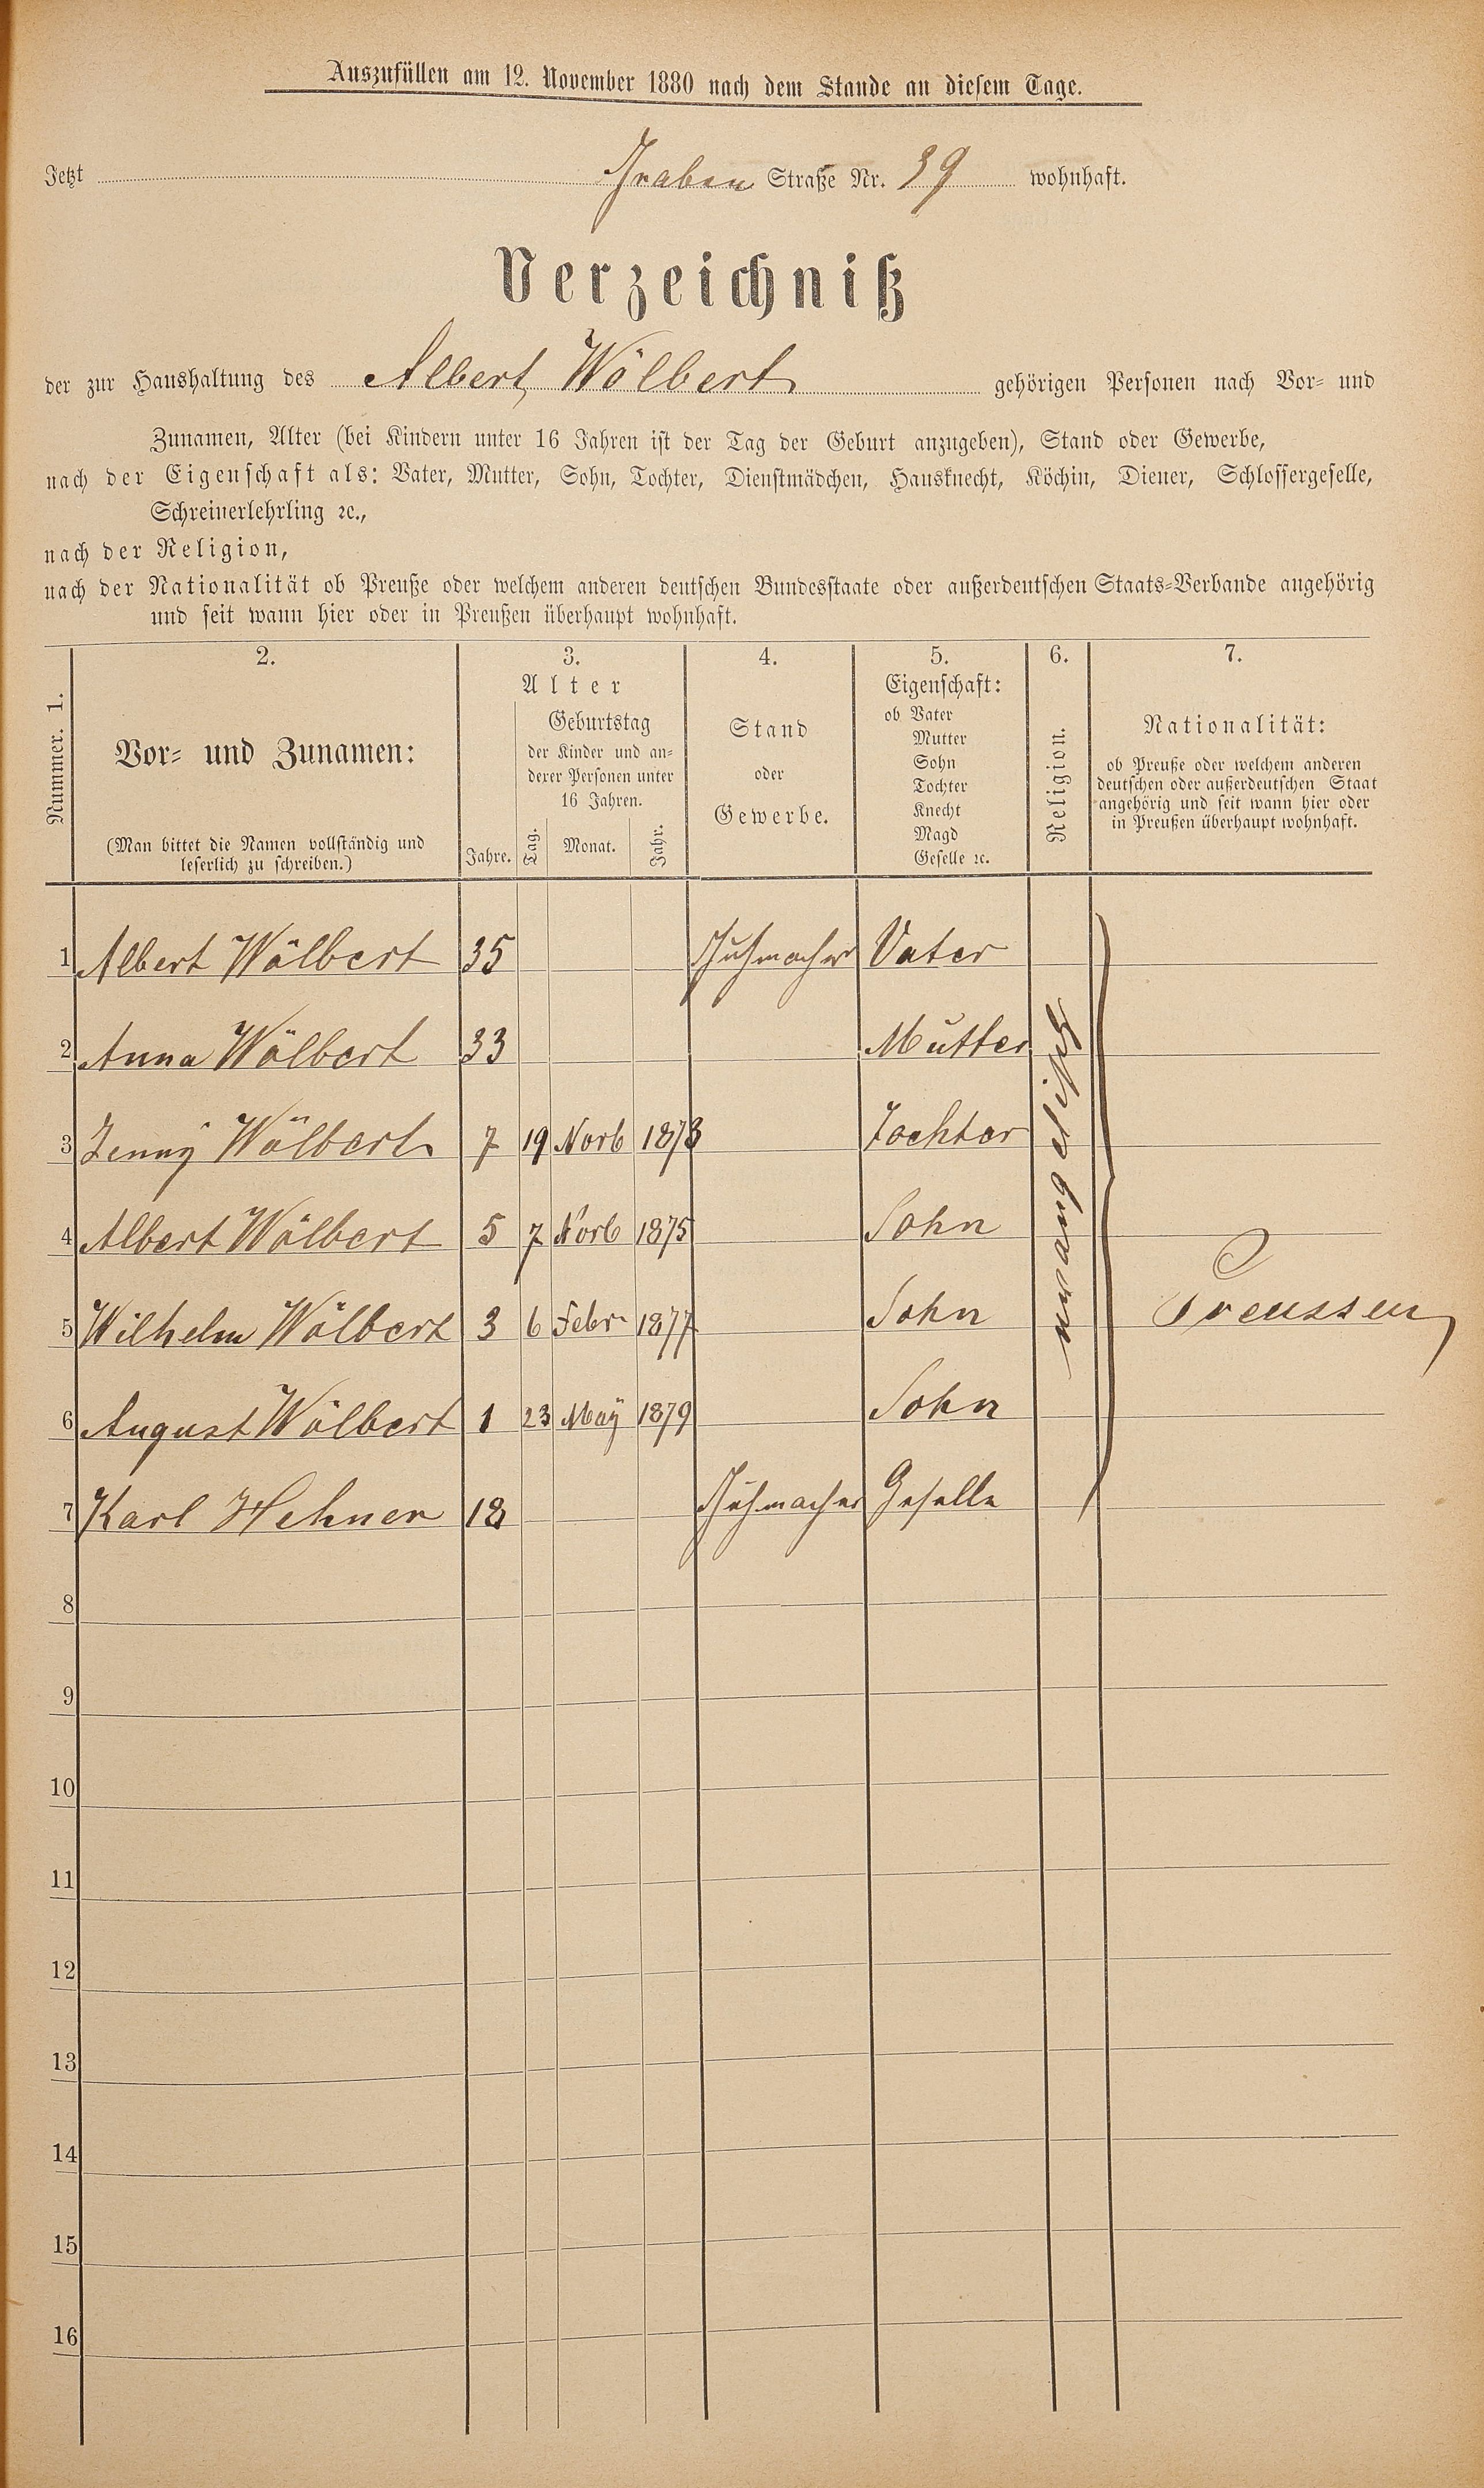 Auszufüllen am 12. November 1880 nach dem Stande an diesem Tage.
Jetzt Graben Straße Nr. 39 wohnhaft.
Verzeichniß
der zur Haushaltung des Albert Wölbert gehörigen Personen nach Vor- und
Zunamen, Alter (bei Kindern unter 16 Jahren ist der Tag der Geburt anzugeben), Stand oder Gewerbe,
nach der Eigenschaft als: Vater, Mutter, Sohn, Tochter, Dienstmädchen, Hausknecht, Köchin, Diener, Schlossergeselle,
Schreinerlehrling ꝛc.,
nach der Religion,
nach der Nationalität ob Preuße oder welchem anderen deutschen Bundesstaate oder außerdeutschen Staats-Verbande angehörig
und seit wann hier oder in Preußen überhaupt wohnhaft.
Nummer. 1.
2.
Vor- und Zunamen:
(Man bittet die Namen vollständig und
leserlich zu schreiben.)
3.
Alter
Jahre.
Geburtstag
der Kinder und an-
derer Personen unter
16 Jahren.
Tag. Monat. Jahr.
4.
Stand
oder
Gewerbe.
5.
Eigenschaft:
ob Vater
Mutter
Sohn
Tochter
Knecht
Magd
Geselle ꝛc.
6.
Religion.
7.
Nationalität:
ob Preuße oder welchem anderen
deutschen oder außerdeutschen Staat
angehörig und seit wann hier oder
in Preußen überhaupt wohnhaft.
1 Albert Wölbert 35 Schuhmacher Vater
2 Anna Wölbert 33 Mutter
3 Jenny Wölbert 7 19 Novb 1873 Tochter
4 Albert Wölbert 5 7 Novb 1875 Sohn
5 Wilhelm Wölbert 3 6 Febr 1877 Sohn
6 August Wölbert 1 23 May 1879 Sohn
7 Karl Hehner 18 Schuhmacher Geselle
evangelisch
Preussen
8
9
10
11
12
13
14
15
16